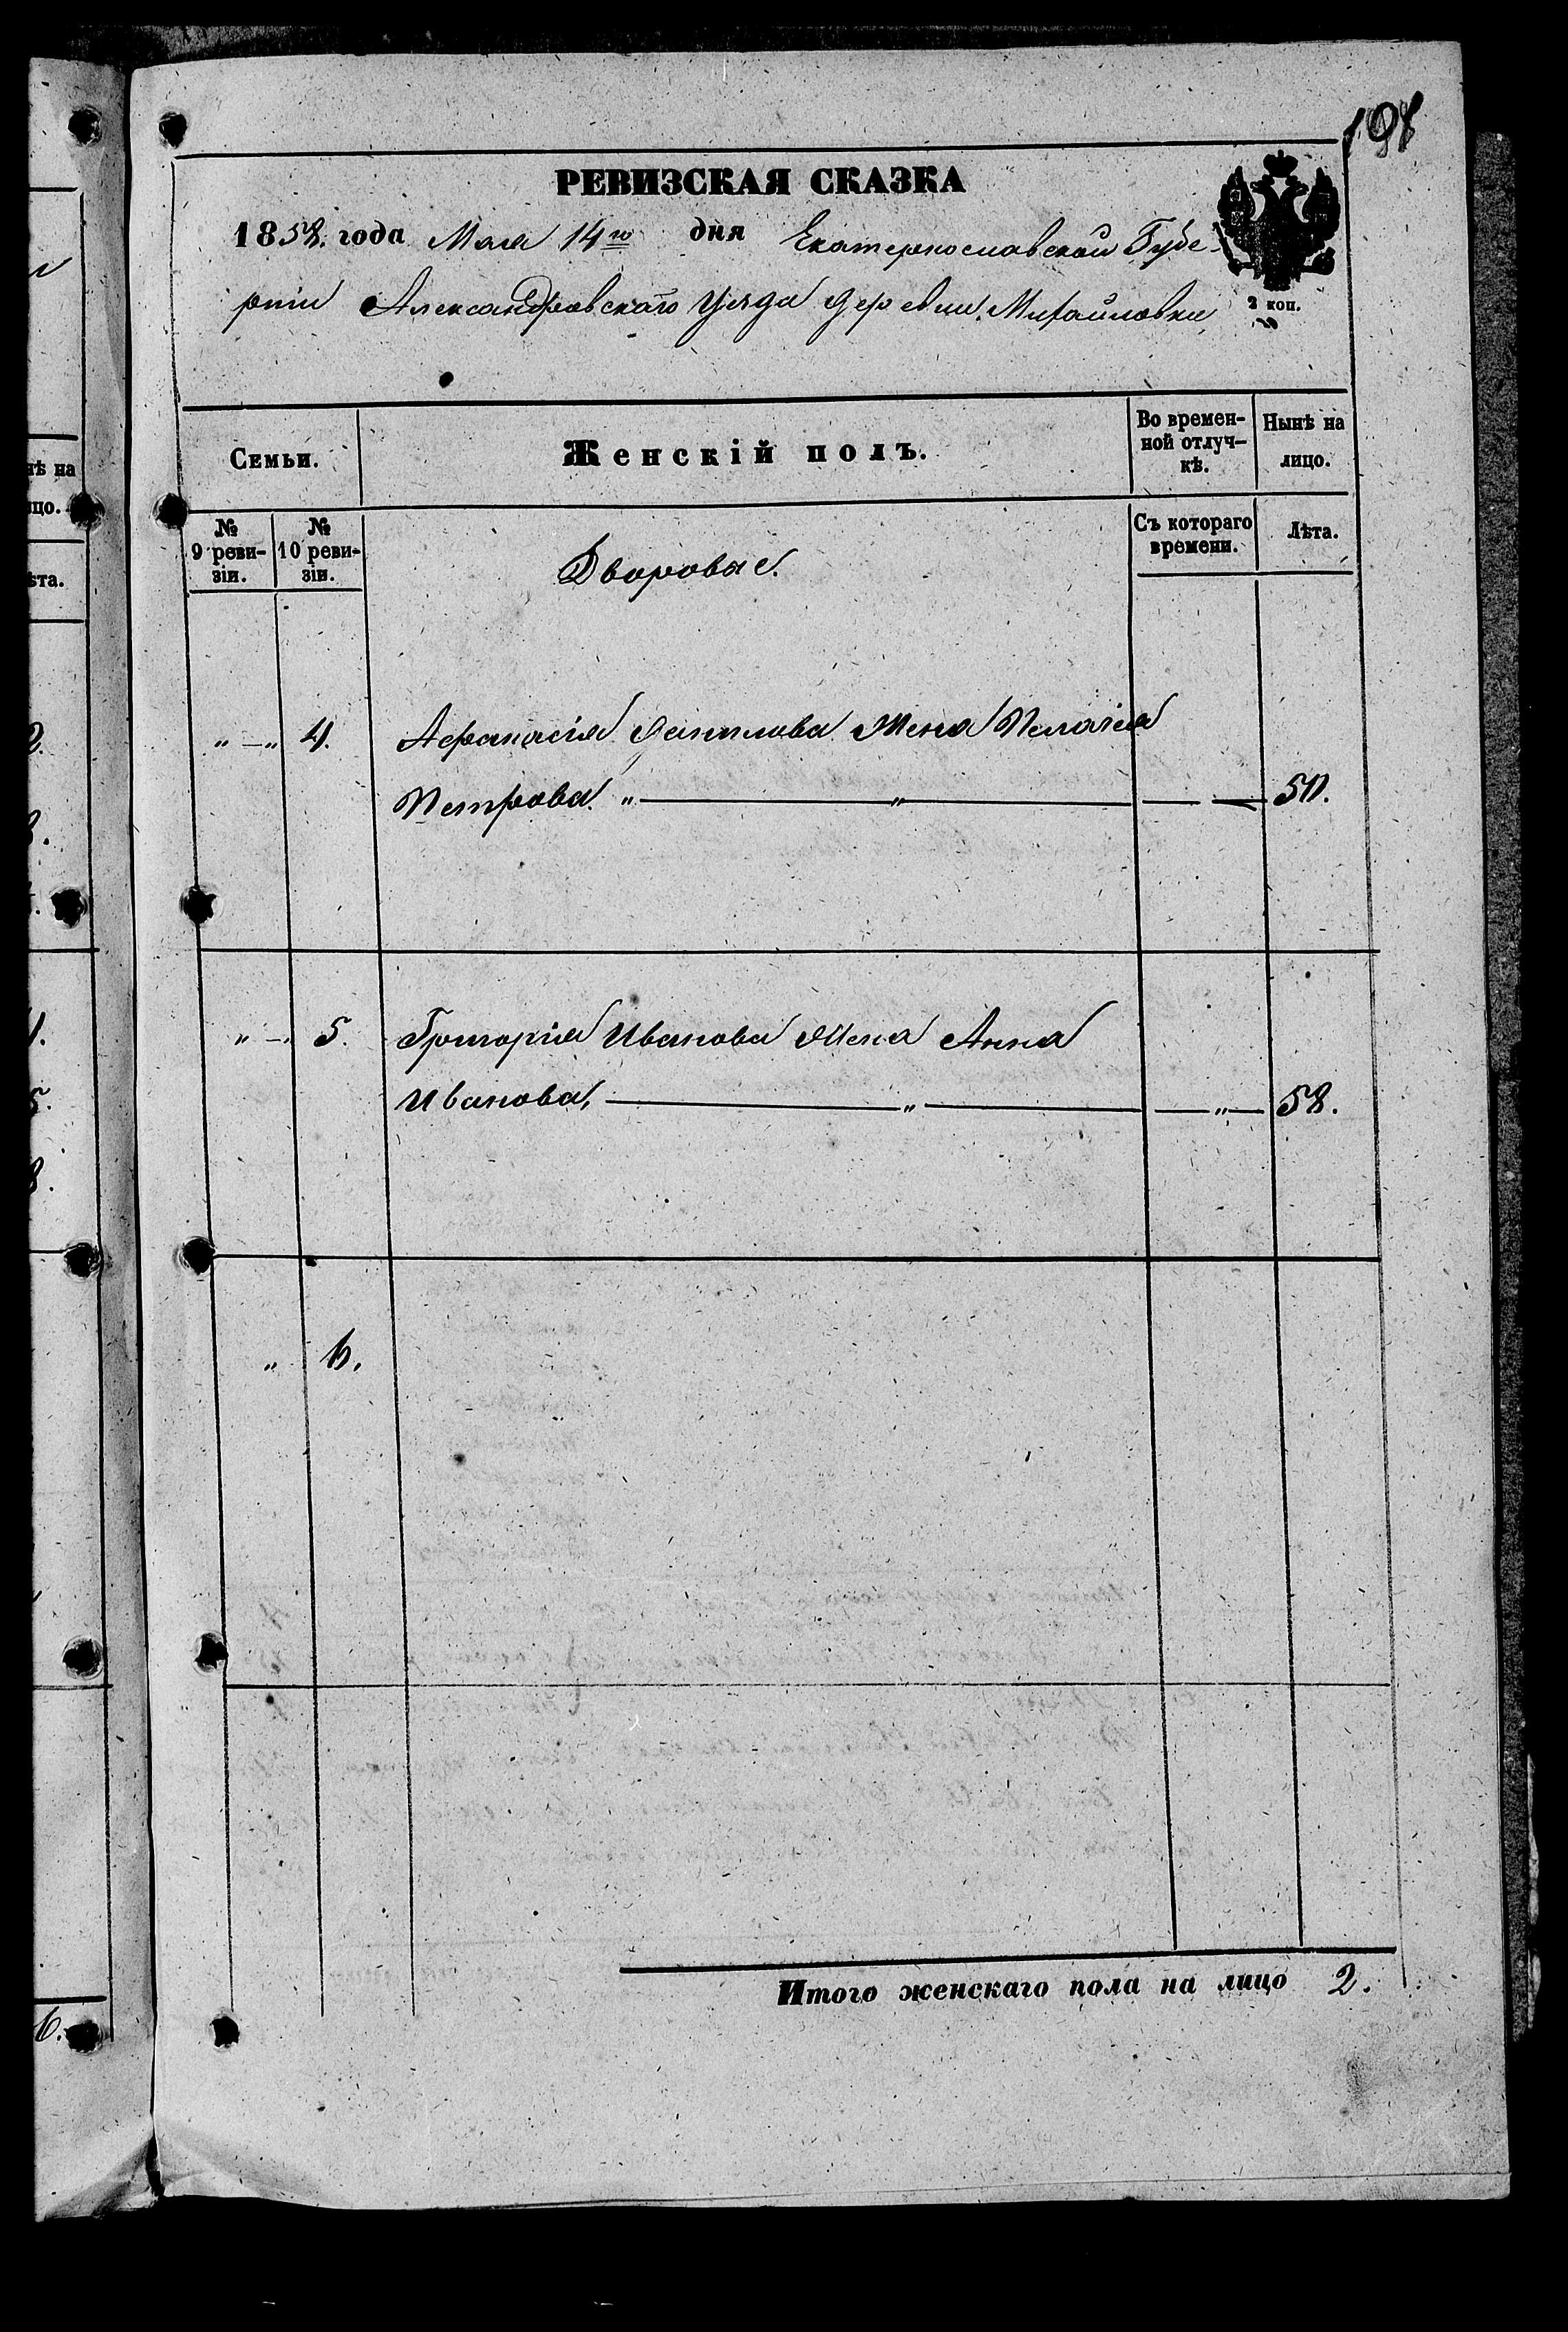 191
РЕВИЗСКАЯ СКАЗКА
1858. года Мая 14го дня Екатеринославской Губе-
рніи Александровскаго уезда деревни Михайловки
2 коп.
Семьи.
Женскій полъ.
Во времен-
ной отлуч-
кѣ.
Нынѣ на
лицо.
№
9 реви-
зіи.
№
10 реви-
зіи.
Дворовые.
Съ котораго
времени.
Лѣта.
„ — „ 4. Афанасія Данилова Жена Пелагія
Петрова. „ — „ — — 50.
„ — „ 5. Григорія Иванова Жена Анна
Иванова, — „ — — „ — 58.
„ 6.
Итого женскаго пола на лицо 2.